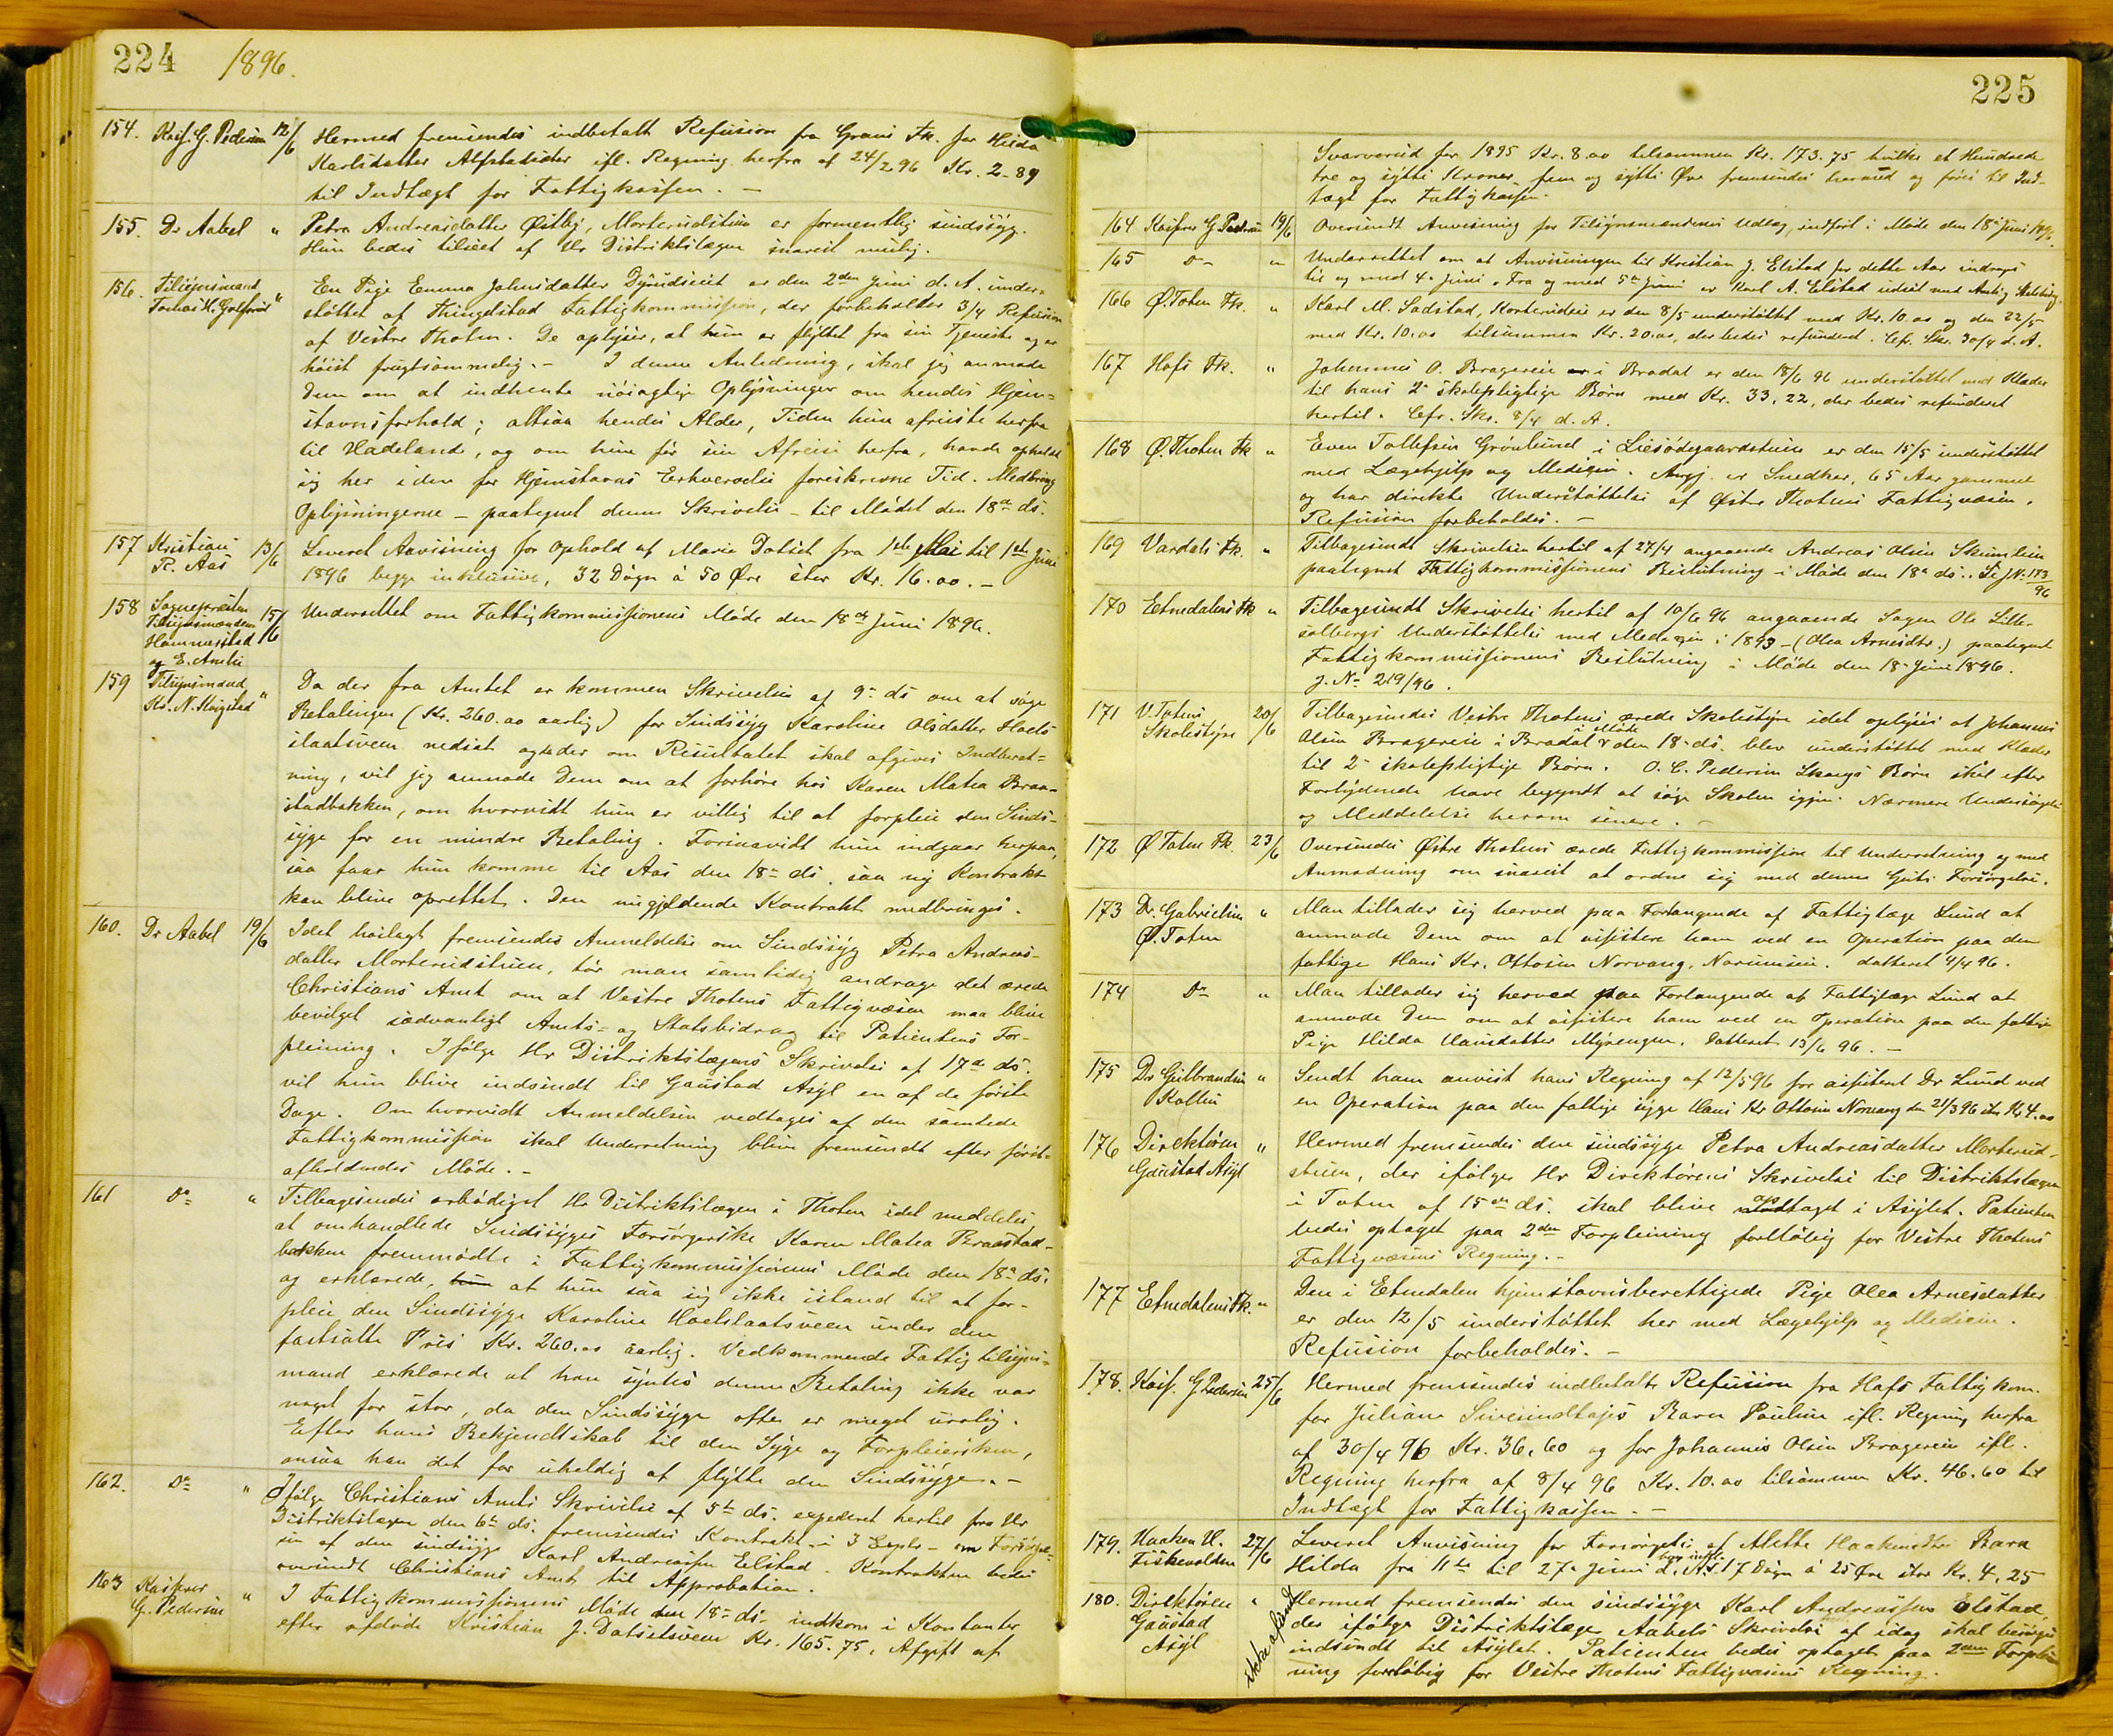 224 1896.
154. Kasf. G. Pedersen 12/6 Hermed fremsendes indbetalt Refusion fra Grans Fk. for
Karlsdatter ifl. Regning herfra af 24/2 96 Kr. 2-89
til Indtægt for Fattigkassen. —
155. Dr Aabel " Petra Andreasdatter Østby, Morterudstuen er formentlig sindssyg.
Hun bedes tilseet af Hr Distriktslægen snarest mulig.
156. Tilsynsmand " En Pige Emma Johnsdatter er den 2den Juni d. A. under-
Tomas H. støttet af Ringelstad Fattigkommission, der forbeholder 3/4 Refusion
af Vestre Thoten. De oplyser, at hun er flyttet fra sin Tjeneste og er
høist frugtsommelig. — I denne Anledning, skal jeg anmode
Dem om at indhente nøiagtige Oplysninger om hendes Hjem-
stavnsforhold; altsaa hendes Alder, Tiden hun afreiste herfra
til Hadeland, og om hun før sin Afreise herfra, havde opholdt
sig her i den for Hjemstavns Erhvervelse foreskrevne Tid. Medbring
Oplysningerne — paategnet denne Skrivelse — til Mødet den 18de ds.
157 Kristian 13/6 Leveret Anvisning for Ophold af Marie Dotset fra 1ste Mai til 1ste Juni
P. Aas 1896 begge inklusive, 32 Døgn á 50 Øre stor Kr. 16.00. —
158 Sognepresten 15/6 Underrettet om Fattigkommissionens Møde den 18de Juni 1896.
Tilsynsmændene
Hammerstad
og E. Amlie
159 Tilsynsmand " Da der fra Amtet er kommen Skrivelse af 9- ds om at søge
Kr. N. Betalingen (Kr. 260.00 aarlig) for Sindssyg Karoline Olsdatter Hoels-
slaatsveen nedsat og der om Resultatet skal afgives Indberet-
ning, vil jeg anmode Dem om at forhøre hos Karen Matea Braa-
stadbakken, om hvorvidt hun er villig til at forpleie den Sinds-
syge for en mindre Betaling. Forsaavidt hun indgaar herpaa,
saa faar hun komme til Aas den 18- ds. saa ny Kontrakt
kan blive oprettet. Den nugjældende Kontrakt medbringes.
160. Dr Aabel 19/6 Idet høilagt fremsendes Anmeldelse om Sindssyg Petra Andreas-
datter Morterudstuen, tør man samtidig andrage det ærede
Christians Amt om at Vestre Thotens Fattigvæsen maa blive
bevilget sædvanligt Amts- og Statsbidrag til Patientens For-
pleining. Ifølge Hr Distriktslægens Skrivelse af 17de ds.
vil hun blive indsendt til Gaustad Asyl en af de første
Dage. Om hvorvidt Anmeldelsen vedtages af den samlede
Fattigkommission skal Underretning blive fremsendt efter først-
afholdendes Møde. —
161 Do " Tilbagesendes ærbødigst Hr Distriktslægen i Thoten idet meddeles,
at omhandlede Sindssyges Forsørgerske Karen Matea Braastad-
bakken fremmødte i Fattigkommissionens Møde den 18de ds.
og erklærede, hun at hun saa sig ikke istand til at for-
pleie den Sindssyge Karoline Hoelslaatsveen under den
fastsatte Pris Kr. 260.00 aarlig. Vedkommende Fattigtilsyns-
mand erklærede at han syntes denne Betaling ikke var
noget for stor, da den Sindssyge ofte er meget urolig.
Efter hans Bekjendtskab til den Syge og Forpleiersken,
ansaa han det for uheldig at flytte den Sindssyge. —
162. Do " Ifølge Christians Amts Skrivelse af 5te ds. expederet hertil fra Hr
Distriktslægen den 6te ds. fremsendes Kontrakt i 3 Expl. — om Forsørgel-
sen af den sindssyge Karl Andreassen Elstad. Kontrakten bedes
oversendt Christians Amt til Approbation.
163 Kasserer " I Fattigkommissionens Møde den 18- ds. indkom i Kontanter
G. Pedersen efter afdøde Kristian J. Dotsetsveen Kr. 165.75, Afgift af
225
Svarverud for 1895 Kr. 8.00 tilsammen Kr. 173.75 hvilke et Hundrede
tre og sytti Kroner fem og sytti Øre fremsendes hermed og føres til Ind-
tægt for Fattigkassen.
164 Kasserer G Pedersen 19/6 Oversendt Anvisning for Tilsynsmændenes Udlæg, indført i Møde den 18de Juni 1896.
165 Do " Underrettet om at Anvisningen til Kristian J. Elstad for dette Aar inddrages
til og med 4. Juni. Fra og med 5te Juni er Karl A. Elstad udsat med
166 Ø. Toten Fk. " Karl M. Sodstad, er den 8/5 understøttet med Kr. 10.00 og den 22/5
med Kr. 10.00 tilsammen Kr. 20.00, der bedes refunderet. Cfr. Skr. 30/4 d. A.
167 Hofs Fk. " Johannes O. Bragereie er i Bradal er den 18/6 96 understøttet med Klæder
til hans 2- skolepligtige Børn med Kr. 33,22, der bedes refunderet
hertil. Cfr. Skr. 8/4 d. A.
168 Ø. Thoten Fk " Even Tollefsen Grønlund i er den 15/5 understøttet
med Lægehjelp og Medicin. Angj. er Snedker, 65 Aar gammel
og har direkte Understøttelse af Østre Thotens Fattigvæsen.
Refusion forbeholdes. —
169 Vardals Fk. " Tilbagesendt Skrivelsen hertil af 27/4 angaaende Andreas Olsen
paategnet Fattigkommissionens Beslutning i Møde den 18de ds. Se J.N. 173/96
170 Etnedalens Fk " Tilbagesendt Skrivelse hertil af 10/6 96 angaaende Sagen Ole Lille-
solbergs Understøttelse med Medicin i 1893 — (Olea Arnesdtr.) paategnet
Fattigkommissionens Beslutning i Møde den 18- Juni 1896.
J. No 219/96.
171 V. Totens 20/6 Tilbagesendes Vestre Thotens ærede Skolestyre idet oplyses at Johannes
Skolestyre Olsen Bragereie i Bradal i Møde den 18- ds. blev understøttet med Klæder
til 2- skolepligtige Børn. O. C. Pedersen Skougs Børn skal efter
Forlydende have begyndt at søge Skolen igjen. Nærmere Undersøgelse
og Meddelelse herom senere. —
172 Ø Toten Fk. 23/6 Oversendes Østre Thotens ærede Fattigkommission til Underretning og med
Anmodning om snarest at ordne sig med denne Gjuts Forsørgelse.
173 Dr. Gabrielsen " Man tillader sig herved paa Forlangende af Fattiglæge Lund at
Ø. Toten anmode Dem om at assistere ham ved en Operation paa den
fattige Hans Kr. Ottosen Norvang, dateret 4/4 96.
174 Do " Man tillader sig herved paa Forlangende af Fattiglæge Lund at
anmode Dem om at assistere ham ved en Operation paa den fattige
Pige Hilda Hansdatter Myrengen. Datteret 13/6 96. —
175 Dr Gulbrandsen " Sendt ham anvist hans Regning af 12/5 96 for assisteret Dr Lund ved
Kolbu en Operation paa den fattige syge Hans Kr Ottosen Norvang den 21/3 96 stor Kr. 4.00
176 Direktøren " Hermed fremsendes den sindssyge Petra Andreasdatter Morterud-
Gaustad Asyl stuen, der ifølge Hr Direktørens Skrivelse til Distriktslægen
i Toten af 15de ds. skal blive optaget i Asylet. Patienten
bedes optaget paa 2den Forpleining forløbig for Vestre Thotens
Fattigvæsens Regning. —
177 Etnedalens Fk. " Den i Etnedalen hjemstavnsberettigede Pige Olea Arnesdatter
er den 12/5 understøttet her med Lægehjelp og Medicin.
Refusion forbeholdes. —
178. Kass. G Pedersen 25/6 Hermed fremsendes indbetalt Refusion fra Hofs Fattigkom.
for Juliane Barn Pauline ifl. Regning herfra
af 30/4 96 Kr. 36,60 og for Johannes Olsen Bragereie ifl.
Regning herfra af 8/4 96 Kr. 10.00 tilsammen Kr. 46.60 til
Indtægt for Fattigkassen. —
179. Haaken H. 27/6 Leveret Anvisning for Forsørgelse af Mette Haakensdtrs Barn
Fiskevolden Hilda fra 11te til 27. Juni d. A. begge incl. 17 Døgn á 25 Øre stor Kr. 4,25
180. Direktøren " Hermed fremsendes den sindssyge Karl Andreassen Elstad,
Gaustad der ifølge Distriktslæge Aabels Skrivelse af idag skal besørges
Asyl indsendt til Asylet. Patienten bedes optaget paa 2den Forplei-
ning forløbig for Vestre Thotens Fattigvæsens Regning.
ikke afsendt